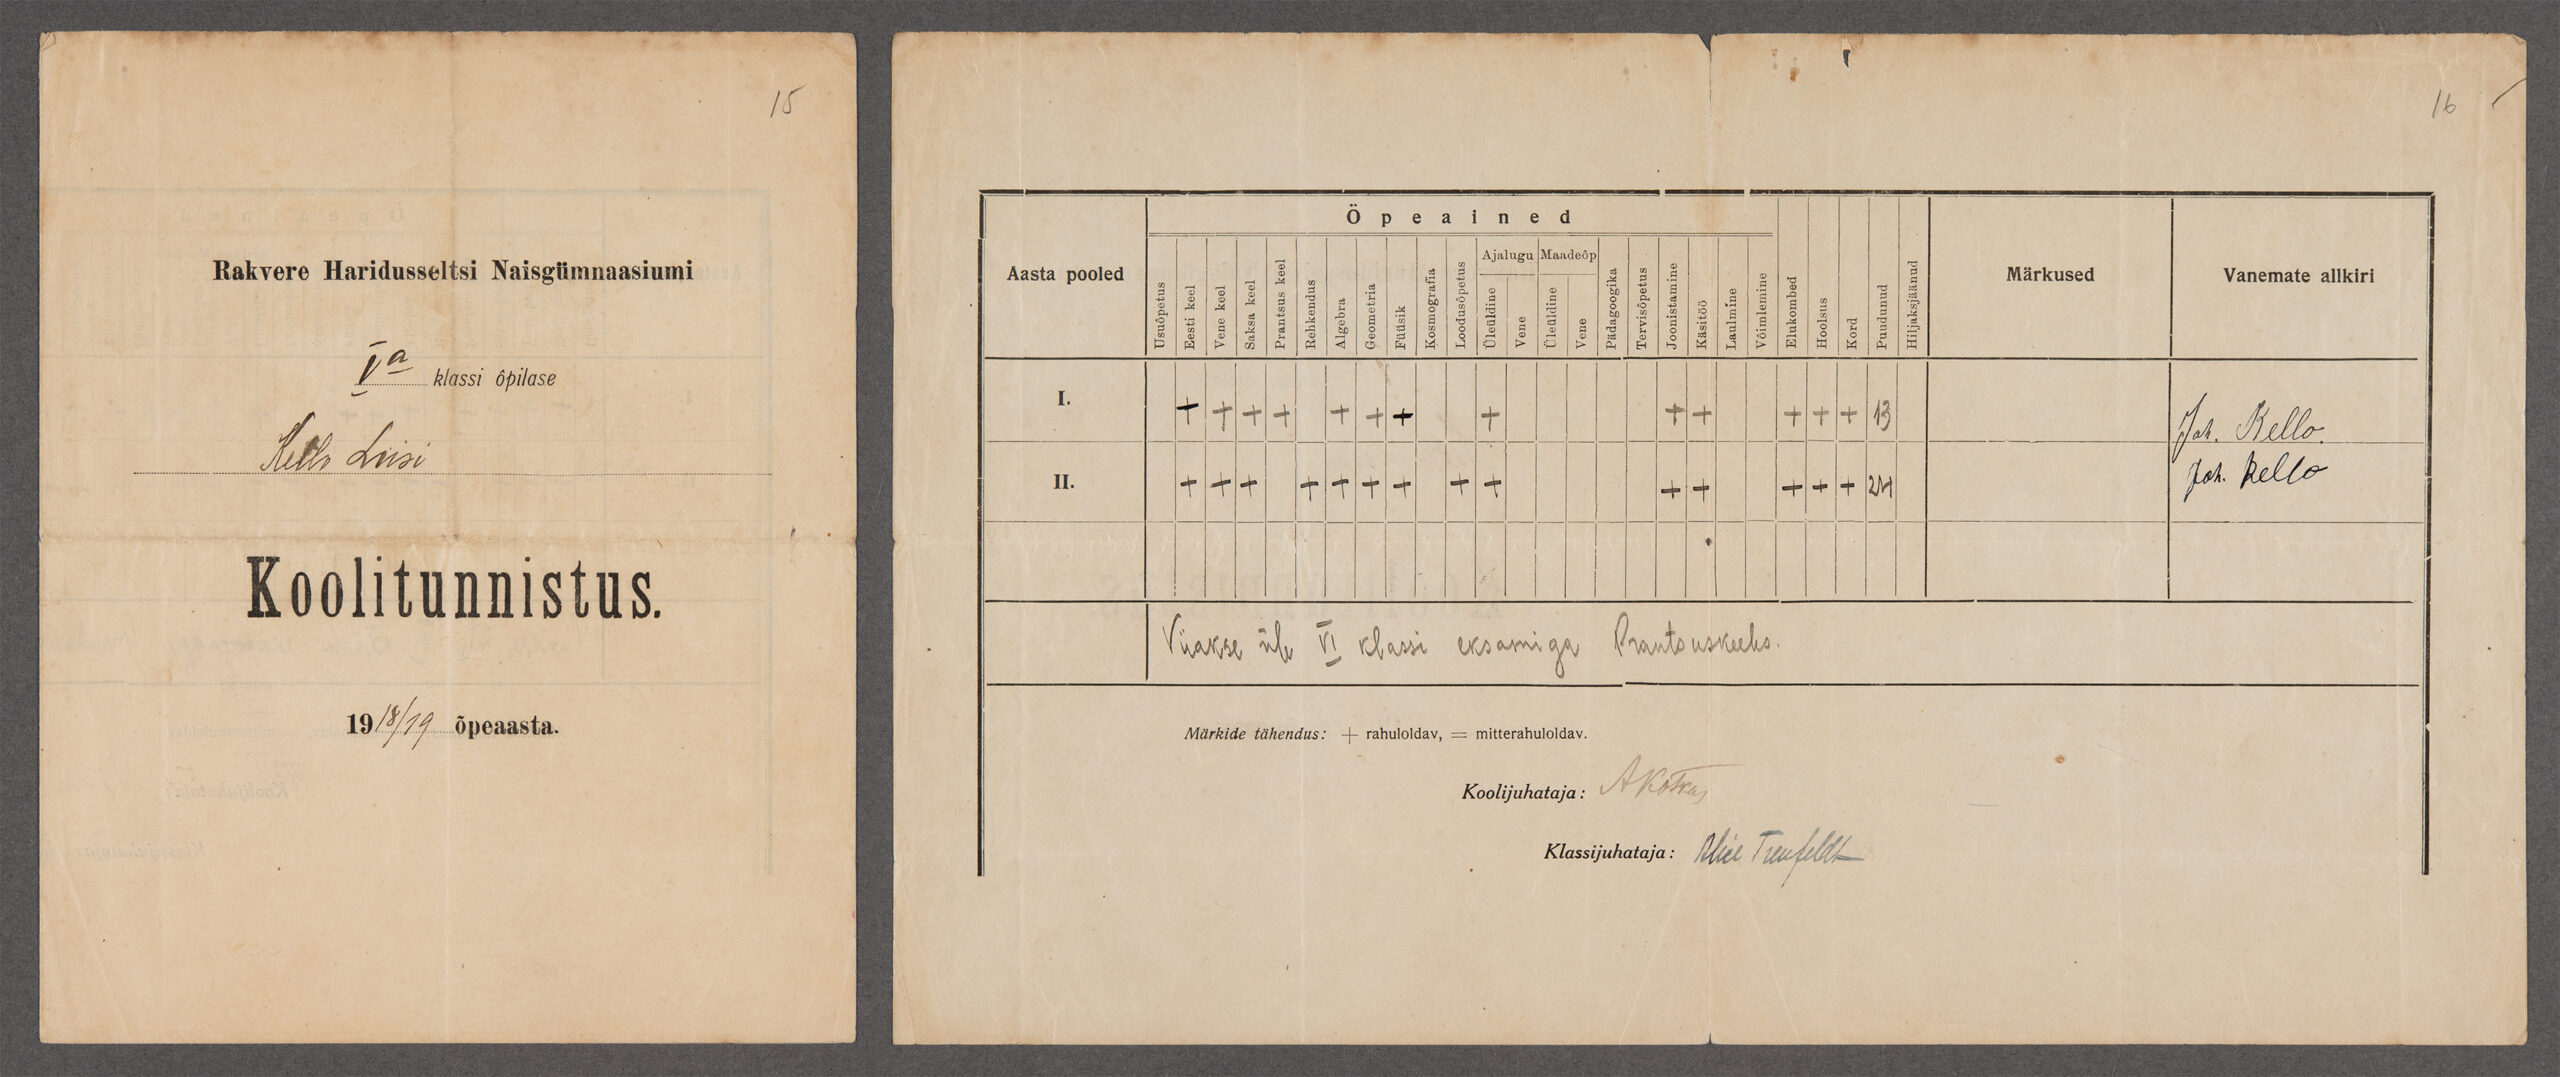 15
Rakvere Haridusseltsi Naisgümnaasiumi
Va klassi ôpilase
Kello Liisi
Koolitunnistus.
1918/19 õpeaasta.
16
Aasta pooled
Öpeained
Usuôpetus
Eesti keel
Vene keel
Saksa keel
Prantsus keel
Rehkendus
Algebra
Geometria
Füüsik
Kosmografia
Loodusôpetus
Ajalugu
Üleüldine
Vene
Maadeôp
Üleüldine
Vene
Pädagoogika
Tervisôpetus
Joonistamine
Käsitöö
Laulmine
Vôimlemine
Elukombed
Hoolsus
Kord
Puudunud
Hiljaksjäänud
Märkused
Vanemate allkiri
I. + + + + + + + + + + + + + 13 Joh. Kello.
II. + + + + + + + + + + + + + + 24 Joh. Kello
Viiakse üle VI klassi eksamiga Prantsuskeeles.
Märkide tähendus: + rahuloldav, = mitterahuloldav.
Koolijuhataja: A Kotkas
Klassijuhataja: Alice Treufeldt